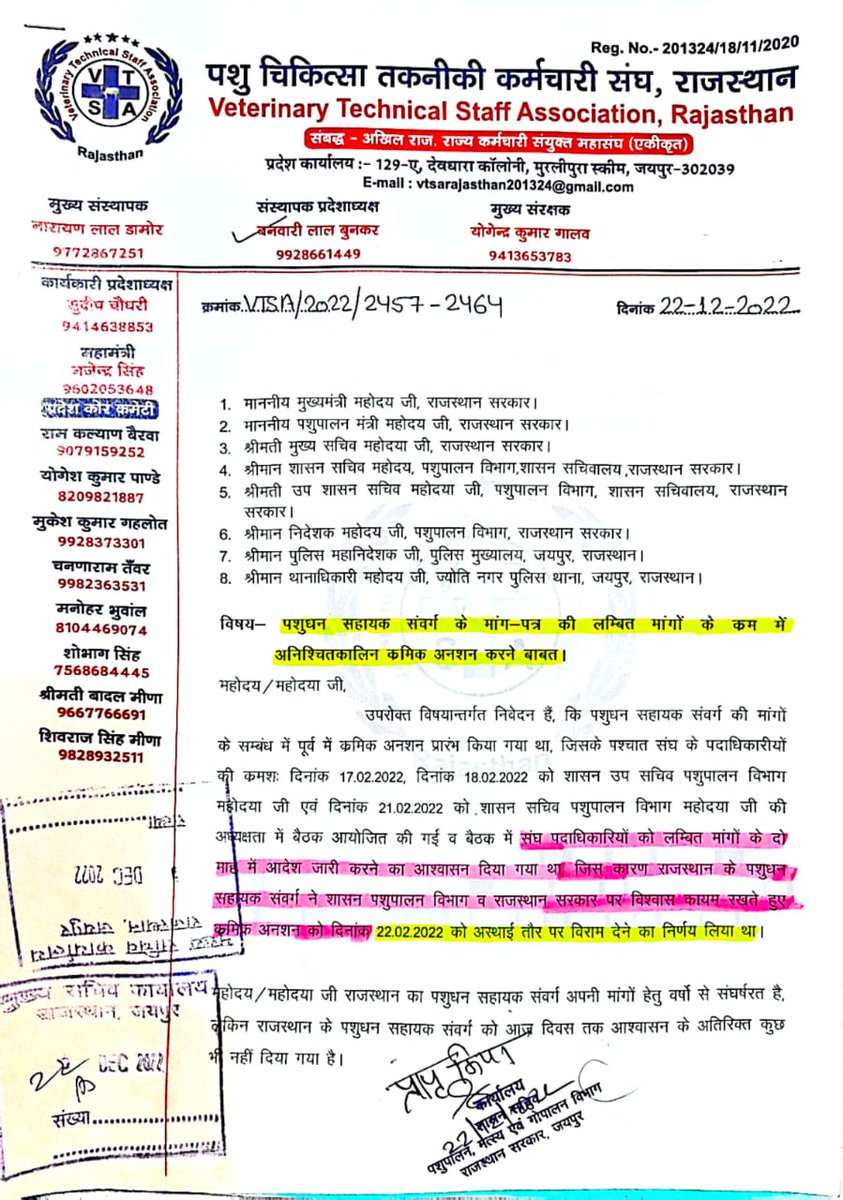 Reg. No.- 201324/18/11/2020
Veterinary Technical Staff Association
V T
S A
Rajasthan
पशु चिकित्सा तकनीकी कर्मचारी संघ, राजस्थान
Veterinary Technical Staff Association, Rajasthan
संबद्ध - अखिल राज. राज्य कर्मचारी संयुक्त महासंघ (एकीकृत)
प्रदेश कार्यालय :- 129-ए, देवधारा कॉलोनी, मुरलीपुरा स्कीम, जयपुर-302039
E-mail : vtsarajasthan201324@gmail.com
मुख्य संस्थापक
नारायण लाल डामोर
9772867251
संस्थापक प्रदेशाध्यक्ष
बनवारी लाल बुनकर
9928661449
मुख्य संरक्षक
योगेन्द्र कुमार गालव
9413653783
कार्यकारी प्रदेशाध्यक्ष
सुदीप चौधरी
9414638853
महामंत्री
गजेन्द्र सिंह
9602053648
प्रदेश कोर कमेटी
राम कल्याण बैरवा
9079159252
योगेश कुमार पाण्डे
8209821887
मुकेश कुमार गहलोत
9928373301
चनणाराम तँवर
9982363531
मनोहर भुवांल
8104469074
शोभाग सिंह
7568684445
श्रीमती बादल मीणा
9667766691
शिवराज सिंह मीणा
9828932511
क्रमांक VTSA/2022/2457-2464
दिनांक 22-12-2022
1. माननीय मुख्यमंत्री महोदय जी, राजस्थान सरकार।
2. माननीय पशुपालन मंत्री महोदय जी, राजस्थान सरकार।
3. श्रीमती मुख्य सचिव महोदया जी, राजस्थान सरकार।
4. श्रीमान शासन सचिव महोदय, पशुपालन विभाग,शासन सचिवालय,राजस्थान सरकार।
5. श्रीमती उप शासन सचिव महोदया जी, पशुपालन विभाग, शासन सचिवालय, राजस्थान
सरकार।
6. श्रीमान निदेशक महोदय जी, पशुपालन विभाग, राजस्थान सरकार।
7. श्रीमान पुलिस महानिदेशक जी, पुलिस मुख्यालय, जयपुर, राजस्थान।
8. श्रीमान थानाधिकारी महोदय जी, ज्योति नगर पुलिस थाना, जयपुर, राजस्थान।
विषय– पशुधन सहायक संवर्ग के मांग–पत्र की लम्बित मांगों के कम में
अनिश्चितकालिन कमिक अनशन करने बाबत।
महोदय/महोदया जी,
उपरोक्त विषयान्तर्गत निवेदन हैं, कि पशुधन सहायक संवर्ग की मांगों
के सम्बंध में पूर्व में कमिक अनशन प्रारंभ किया गया था, जिसके पश्चात संघ के पदाधिकारीयों
की कमशः दिनांक 17.02.2022, दिनांक 18.02.2022 को शासन उप सचिव पशुपालन विभाग
महोदया जी एवं दिनांक 21.02.2022 को शासन सचिव पशुपालन विभाग महोदया जी की
अध्यक्षता में बैठक आयोजित की गई व बैठक में संघ पदाधिकारियों को लम्बित मांगों के दो
माह में आदेश जारी करने का आश्वासन दिया गया था जिस कारण राजस्थान के पशुधन
सहायक संवर्ग ने शासन पशुपालन विभाग व राजस्थान सरकार पर विश्वास कायम रखते हुए
कमिक अनशन को दिनांक 22.02.2022 को अस्थाई तौर पर विराम देने का निर्णय लिया था।
महोदय/महोदया जी राजस्थान का पशुधन सहायक संवर्ग अपनी मांगों हेतु वर्षो से संघर्षरत है,
लेकिन राजस्थान के पशुधन सहायक संवर्ग को आज दिवस तक आश्वासन के अतिरिक्त कुछ
भी नहीं दिया गया है।
संख्या
DEC 2022
मुख्य सचिव कार्यालय
राजस्थान, जयपुर
मुख्य सचिव कार्यालय
राजस्थान, जयपुर
22 DEC 2022
संख्या
कार्यालय
शासन सचिव
पशुपालन, मत्स्य एवं गोपालन विभाग
राजस्थान सरकार, जयपुर